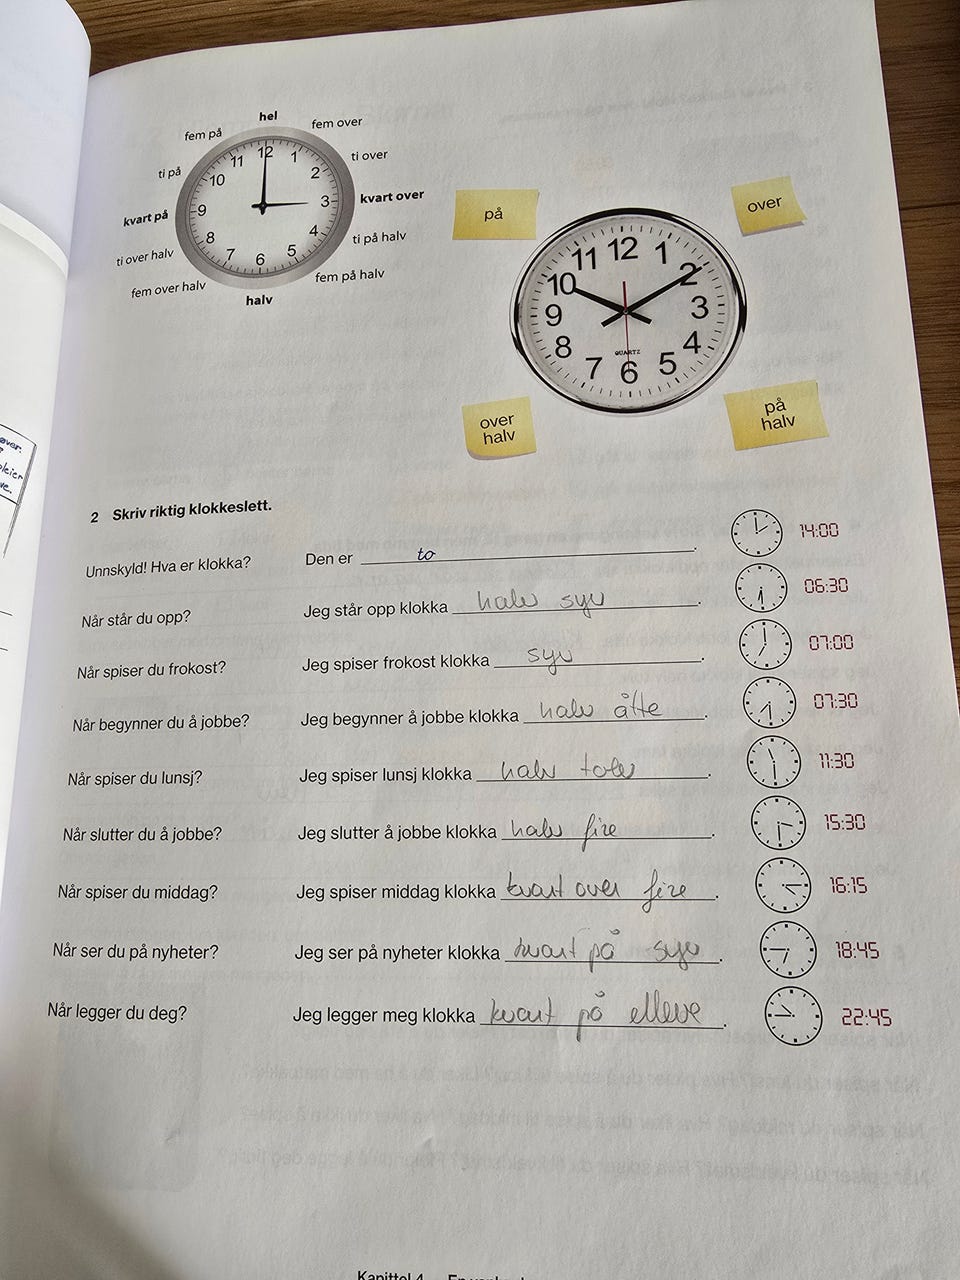 hel
fem på
fem over
ti på
ti over
kvart på
kvart over
ti over halv
ti på halv
fem over halv
fem på halv
halv
12
1
2
3
4
5
6
7
8
9
10
11
på
over
12
1
2
3
4
5
6
7
8
9
10
11
QUARTZ
over
halv
på
halv
2 Skriv riktig klokkeslett.
Unnskyld! Hva er klokka? Den er to . 14:00
Når står du opp? Jeg står opp klokka halv syv . 06:30
Når spiser du frokost? Jeg spiser frokost klokka syv . 07:00
Når begynner du å jobbe? Jeg begynner å jobbe klokka halv åtte . 07:30
Når spiser du lunsj? Jeg spiser lunsj klokka halv tolv . 11:30
Når slutter du å jobbe? Jeg slutter å jobbe klokka halv fire . 15:30
Når spiser du middag? Jeg spiser middag klokka kvart over fire . 16:15
Når ser du på nyheter? Jeg ser på nyheter klokka kvart på syv . 18:45
Når legger du deg? Jeg legger meg klokka kvart på elleve . 22:45
Kapittel 4